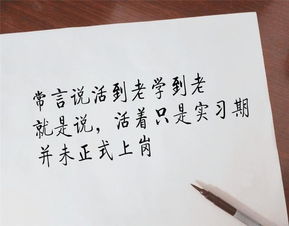 常言说活到老学到老
就是说，活着只是实习期
并未正式上岗